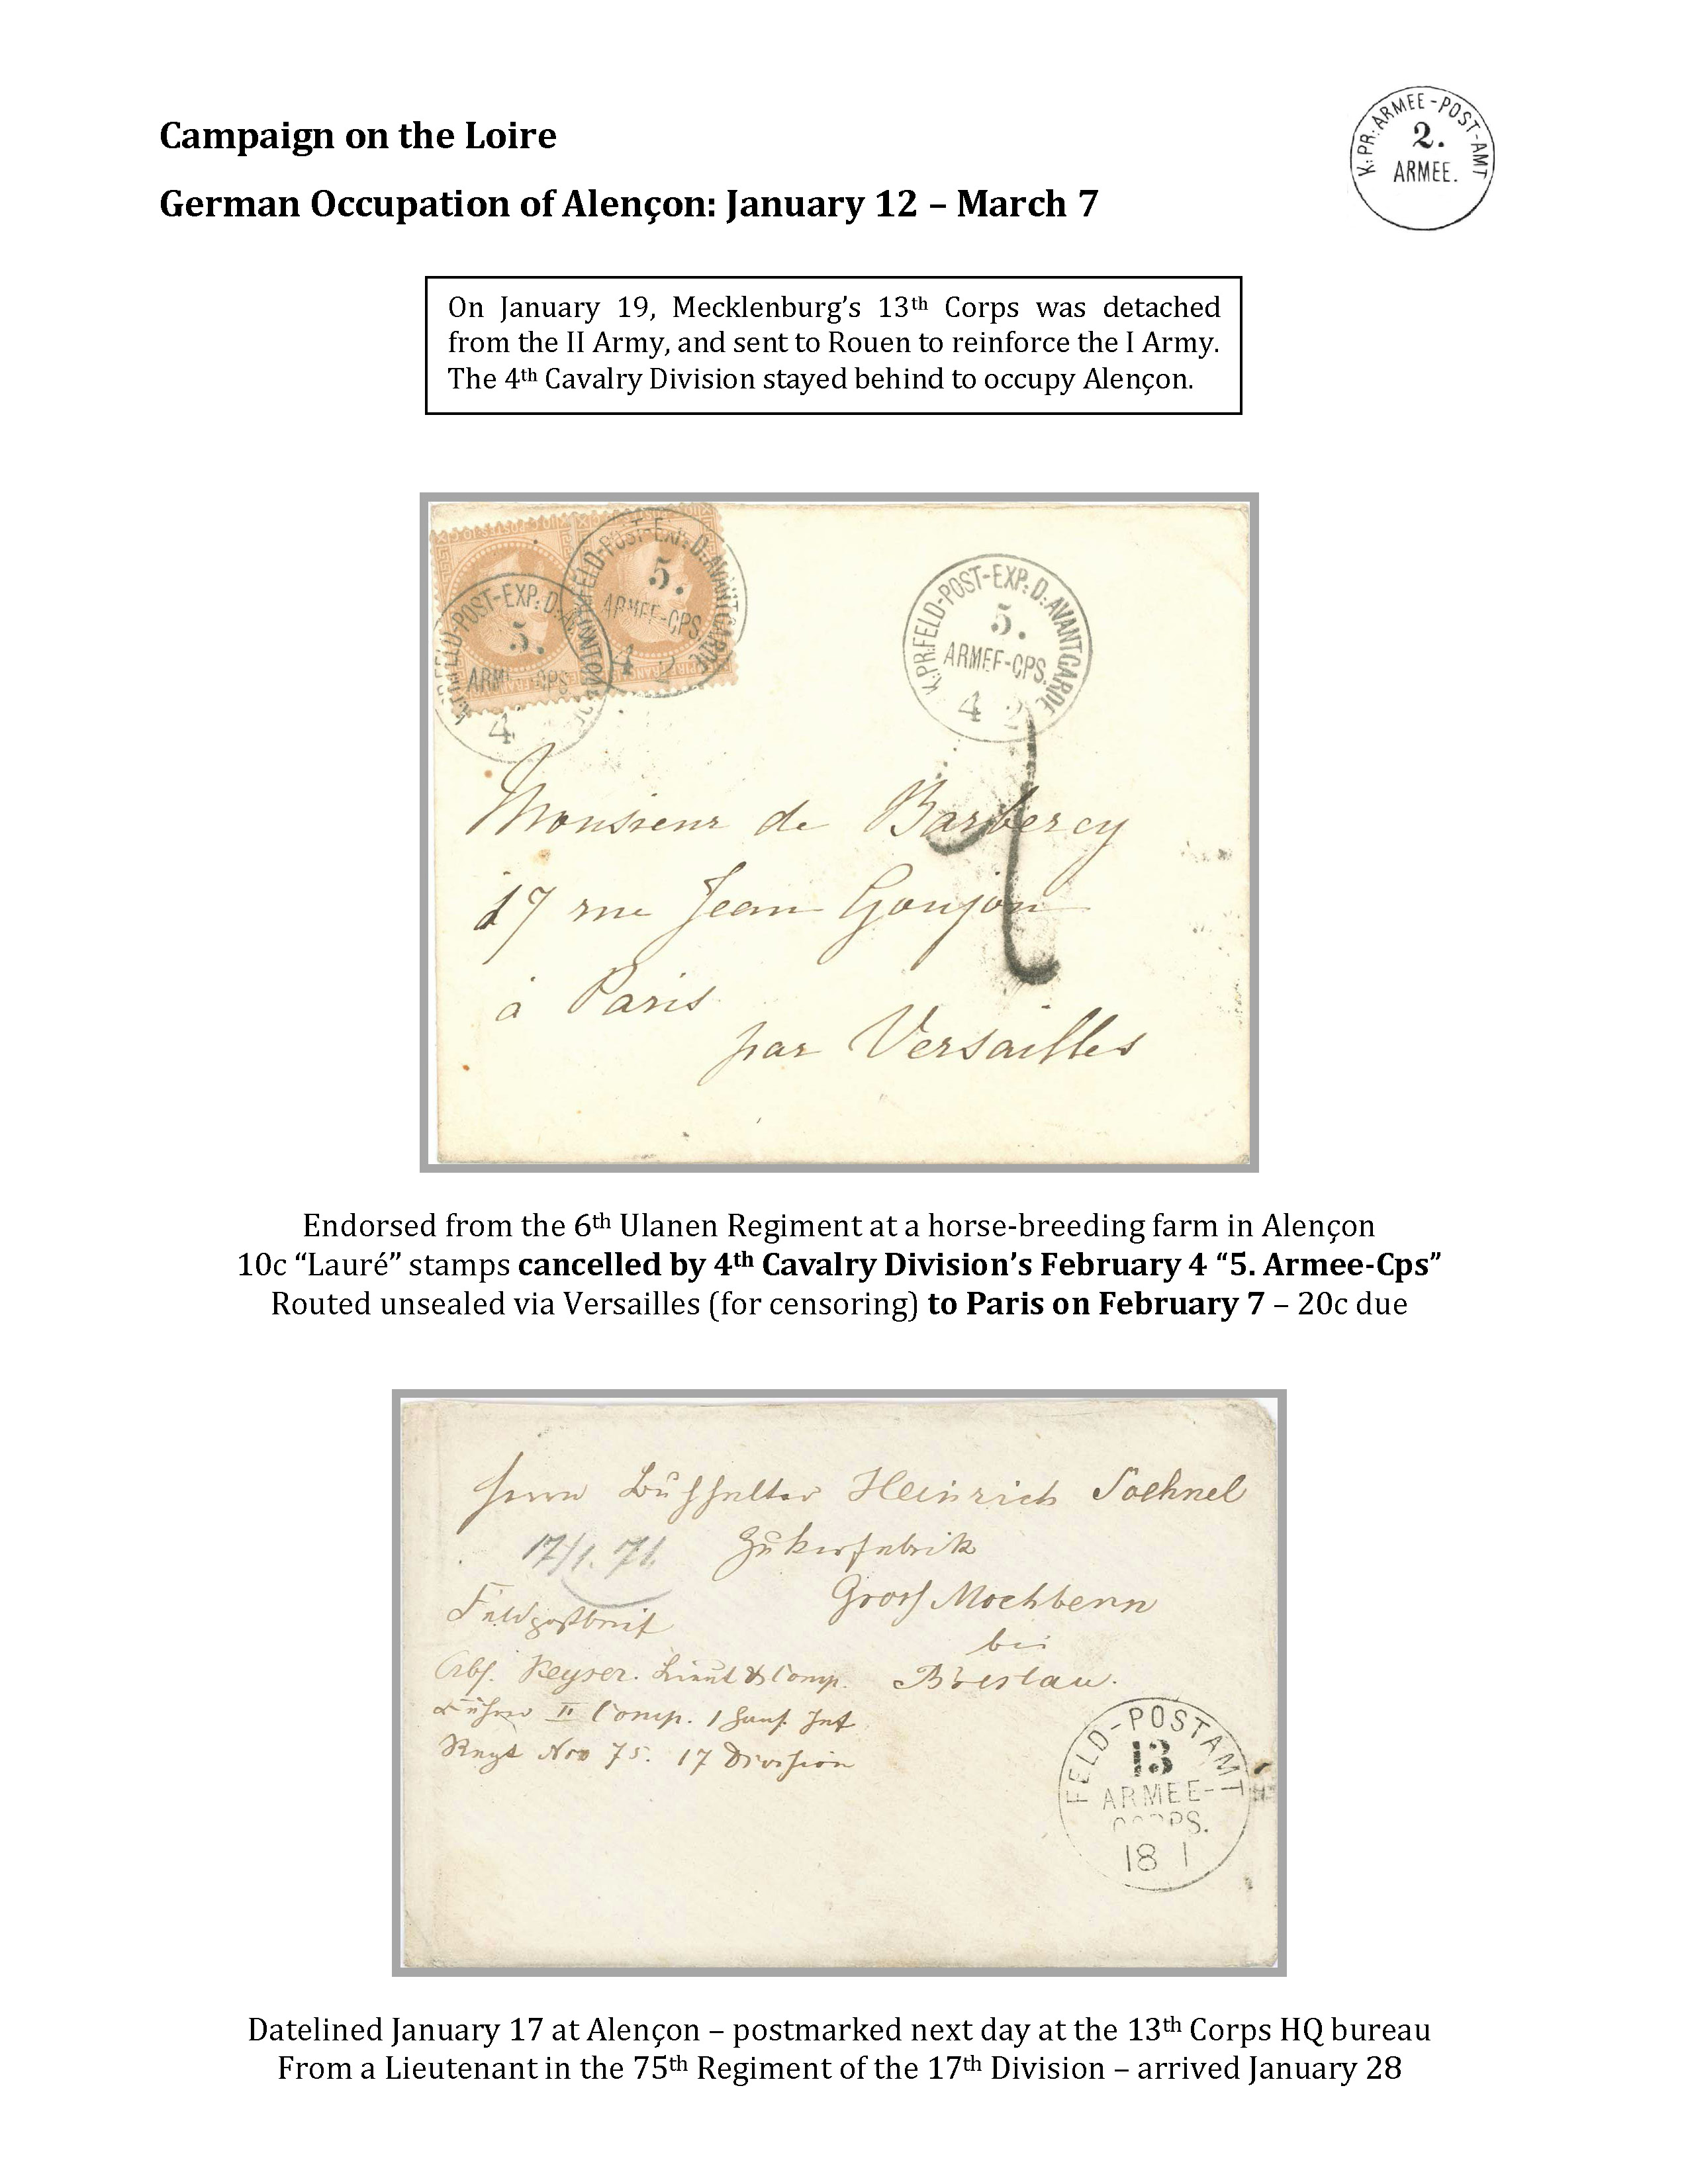 Campaign on the Loire
K. PR. ARMEE-POST-AMT
2.
ARMEE.
German Occupation of Alençon: January 12 – March 7
On January 19, Mecklenburg’s 13th Corps was detached
from the II Army, and sent to Rouen to reinforce the I Army.
The 4th Cavalry Division stayed behind to occupy Alençon.
K.PR.FELD-POST-EXP. D. AVANTGARDE
5.
ARMEE-CPS.
4 2
K.PR.FELD-POST-EXP. D. AVANTGARDE
5.
ARMEE-CPS.
4
K.PR.FELD-POST-EXP. D. AVANTGARDE
5.
ARMEE-CPS.
4 2
Monsieur de Barbercy
17 rue Jean Goujon
à Paris
par Versailles
Endorsed from the 6th Ulanen Regiment at a horse-breeding farm in Alençon
10c “Lauré” stamps cancelled by 4th Cavalry Division’s February 4 “5. Armee-Cps”
Routed unsealed via Versailles (for censoring) to Paris on February 7 – 20c due
Herrn Buchhalter Heinrich Soehnel
17/1. 71.
Zukerfabrik
Gross Mochbern
Feldpostbrief
bei
Abs. Keyser. Lieut & Comp.
Breslau.
Führer II Comp. 1 Hans. Inf
Regt Nro 75. 17 Division
FELD-POSTAMT
13
ARMEE-
CORPS.
18 1
Datelined January 17 at Alençon – postmarked next day at the 13th Corps HQ bureau
From a Lieutenant in the 75th Regiment of the 17th Division – arrived January 28